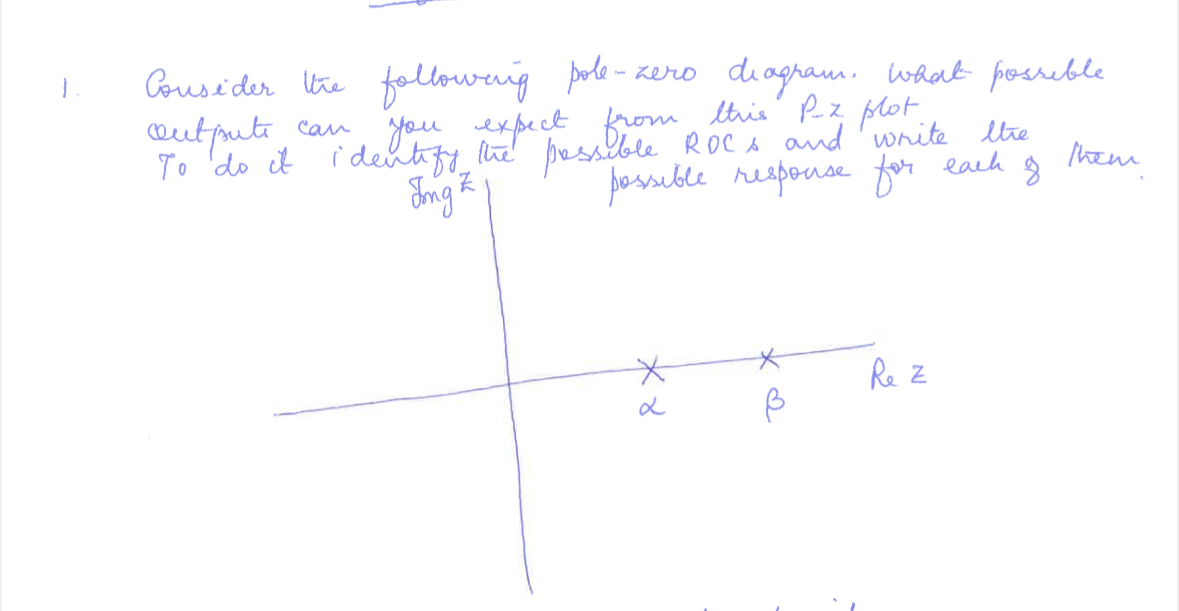 1. Consider the following pole-zero diagram. What possible
outputs can you expect from this P-Z plot
To do it identify the possible ROCs and write the
possible response for each of them.
Img Z
Re Z
α
β